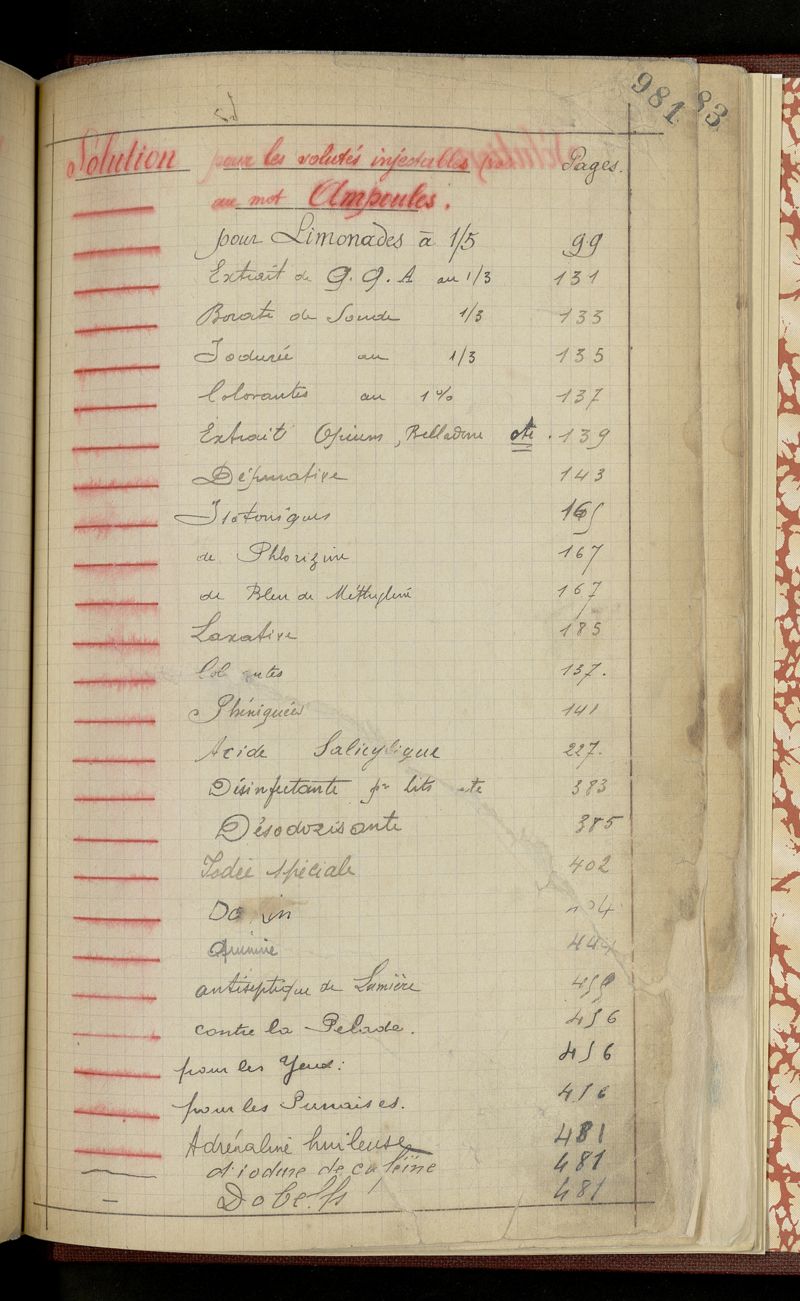 981 83
Solution pour les solutés injectables Pages.
au mot Ampoules.
pour Limonades à 1/5 99
Extrait de G. G. A au 1/3 131
Borate de Soude 1/3 133
Iodurée au 1/3 135
Colorantes au 1% 137
Extrait Opium, Belladone etc. 139
Dépurative 143
Isotoniques 165
de Phlorizine 167
de Bleu de Méthylène 167
Laxative 185
137.
Phéniquées 141
Acide Salicylique 227.
Désinfectante pr lits etc 383
Désodorisante 385
Iodée spéciale 402

Quinine 444
antiseptique de Lumière
contre la Pelade. 456
pour les Yeux: 456
pour les Punaises. 456
Adrénaline huileuse 481
d'iodure de caféine 481
Dobell's 481